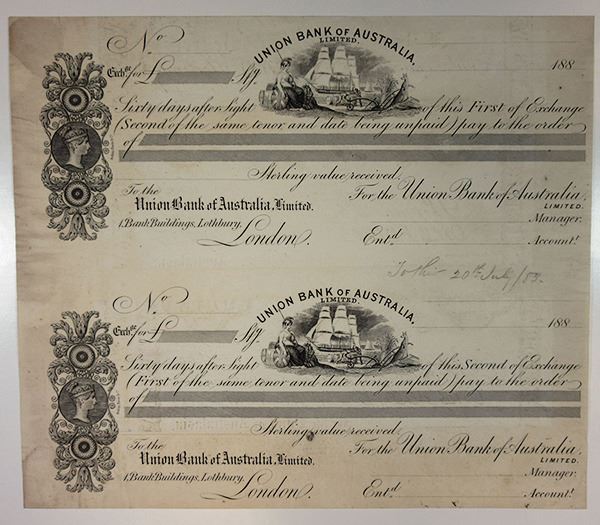 No
UNION BANK OF AUSTRALIA,
LIMITED.
Exch.ge for £ Stg. 188
Sixty days after Sight of this First of Exchange
(Second of the same tenor and date being unpaid) pay to the order
of
Sterling value received.
To the For the Union Bank of Australia,
Union Bank of Australia, Limited. LIMITED.
1, Bank Buildings, Lothbury, Manager.
London. Ent.d Account.t
20th July/83.
No
UNION BANK OF AUSTRALIA,
LIMITED.
Exch.ge for £ Stg. 188
Sixty days after Sight of this Second of Exchange
(First of the same tenor and date being unpaid) pay to the order
of
Sterling value received
To the For the Union Bank of Australia,
Union Bank of Australia, Limited. LIMITED.
1, Bank Buildings, Lothbury, Manager.
London. Ent.d Account.t